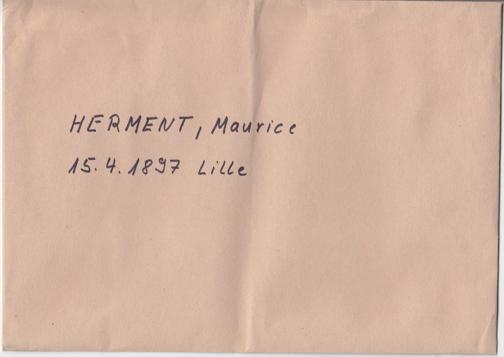 HERMENT, Maurice
15.4.1897 Lille